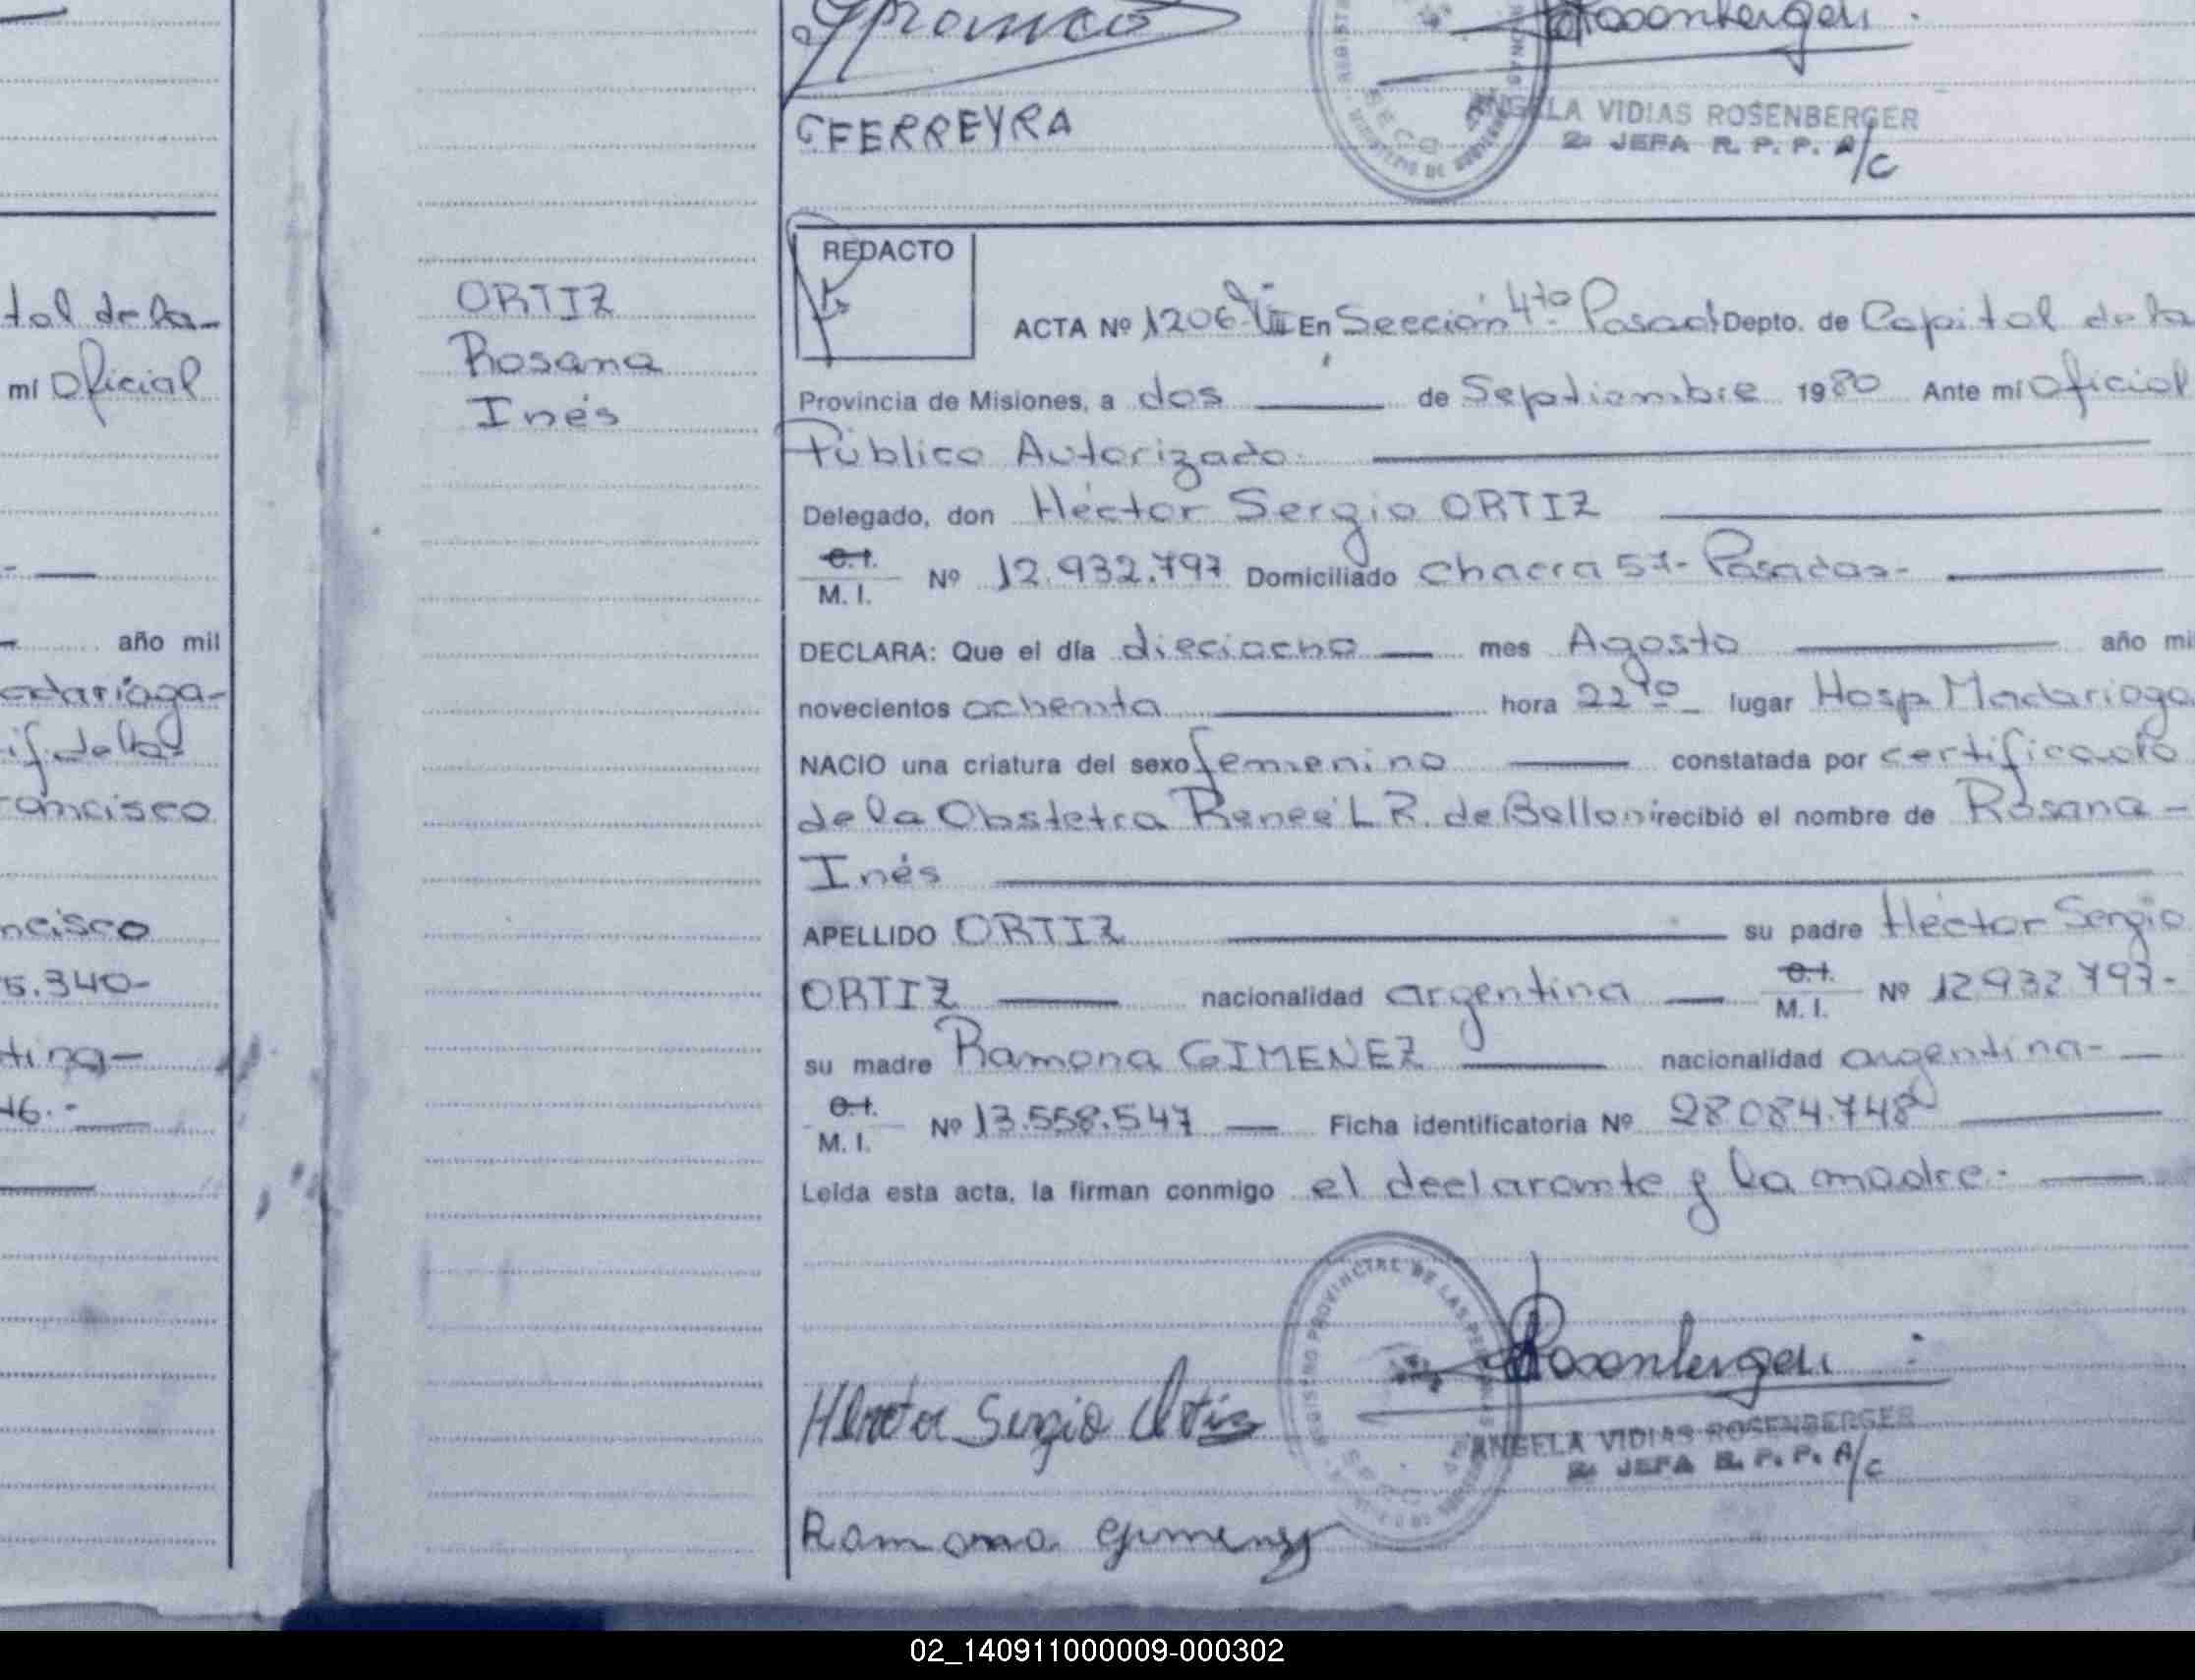 Franco
Rosenberger
FERREYRA
ANGELA VIDIAS ROSENBERGER
2a JEFA R. P. P. A/C
tal de la
mí Oficial
año mil
adariaga-
if. de la
rancisco
ncisco
5.340-
tina-
46.-
ORTIZ
Rosana
Inés
REDACTO
ACTA Nº 1206-VIII En Sección 4ta Posad Depto. de Capital de la
Provincia de Misiones, a dos de Septiembre 1980 Ante mí Oficial
Público Autorizado.
Delegado, don Héctor Sergio ORTIZ
C.I.
M. I. Nº 12.932.797 Domiciliado Chacra 57- Posadas-
DECLARA: Que el día dieciocho mes Agosto año mi
novecientos ochenta hora 22 lugar Hosp Madariaga
NACIO una criatura del sexo femenino constatada por certificado
de la Obstetra Reneé L R. de Belloni recibió el nombre de Rosana -
Inés
APELLIDO ORTIZ su padre Héctor Sergio
ORTIZ nacionalidad argentina C.I. M. I. Nº 12932797-
su madre Ramona GIMENEZ nacionalidad argentina-
C.I.
M. I. Nº 13.558.547 Ficha identificatoria Nº 28.084.748
Leída esta acta, la firman conmigo el declarante y la madre.
REGISTRO PROVINCIAL DE LAS PERSONAS
Rosenberger
Héctor Sergio Ortiz
ANGELA VIDIAS ROSENBERGER
2a JEFA R. P. P. A/C
Ramona Gimenez
02_140911000009-000302